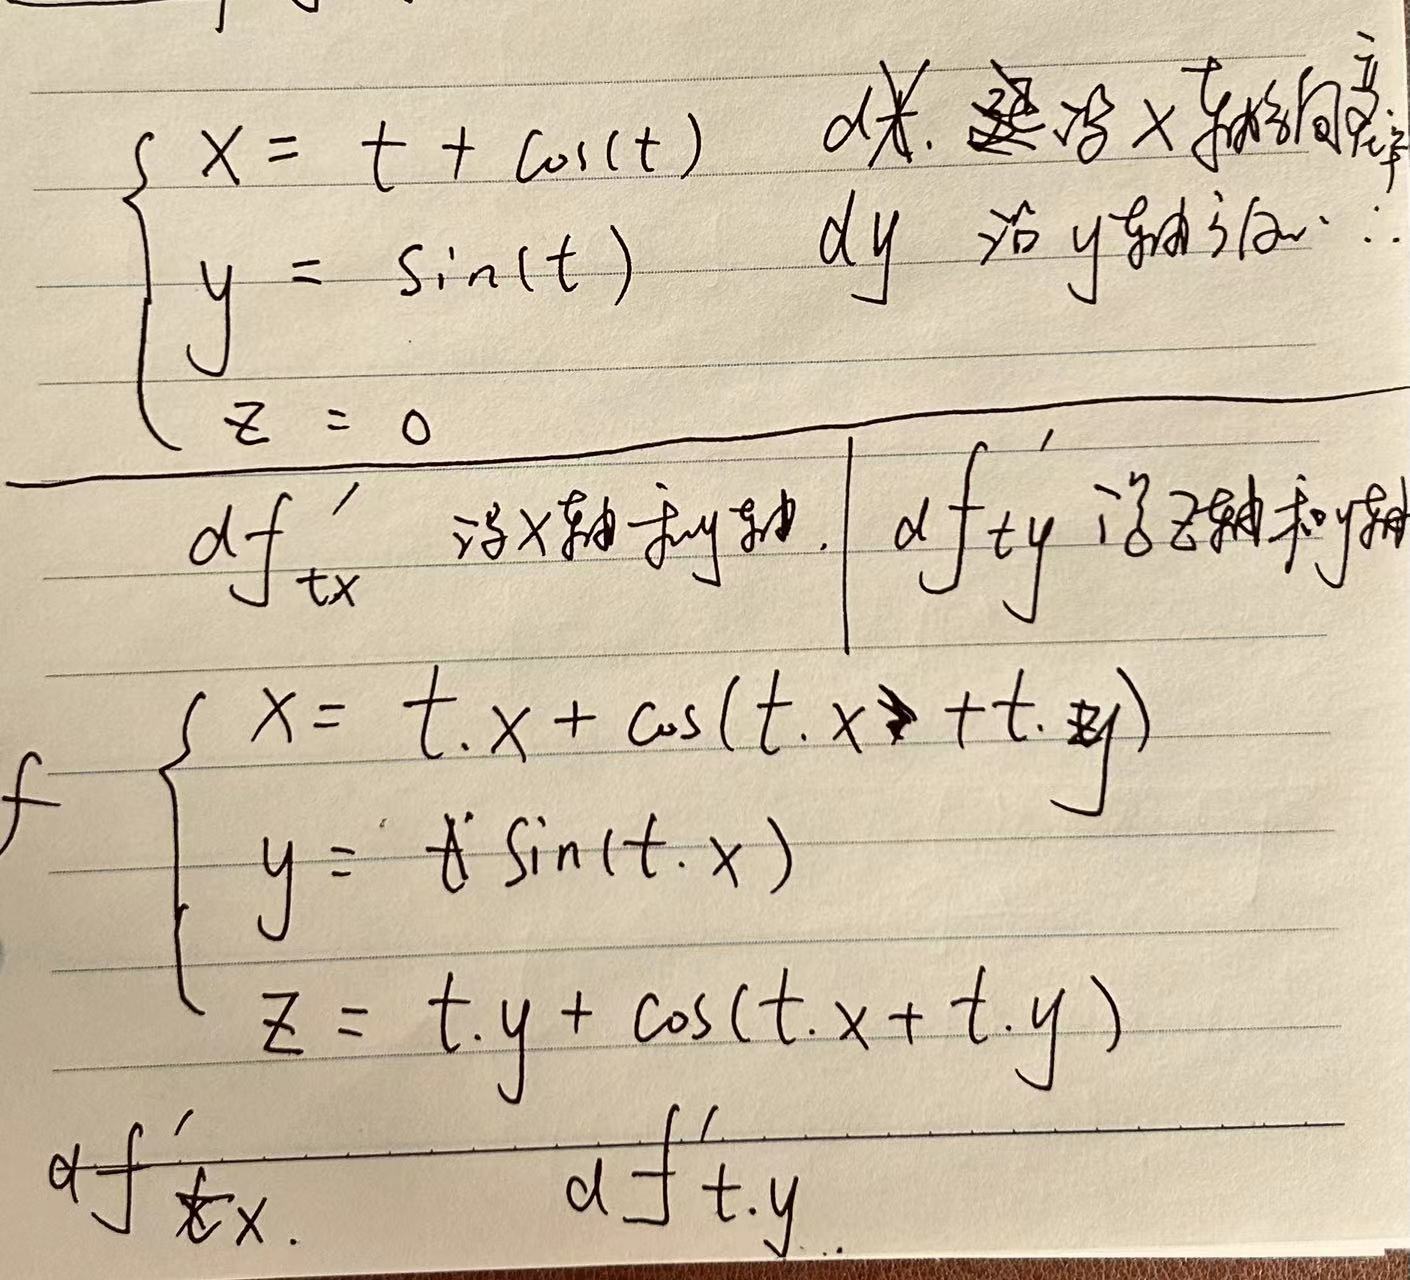 x = t + cos(t) dx. 沿 x 轴
y = sin(t) dy 沿 y 轴
z = 0
df'tx 沿x轴和y轴. df'ty 沿z轴和y轴
f
x = t.x + cos(t.x + t.y)
y = sin(t.x)
z = t.y + cos(t.x + t.y)
df'tx. df't.y